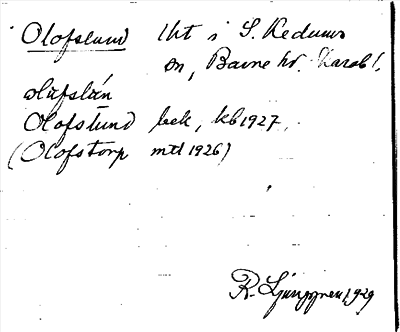 Olofslund lht i S. Kedums
sn, Barne hd. Skarab l.
olåfslún
Olofslund bek, kb 1927,
(Olofstorp mtl 1926)
R. Ljunggren 1929